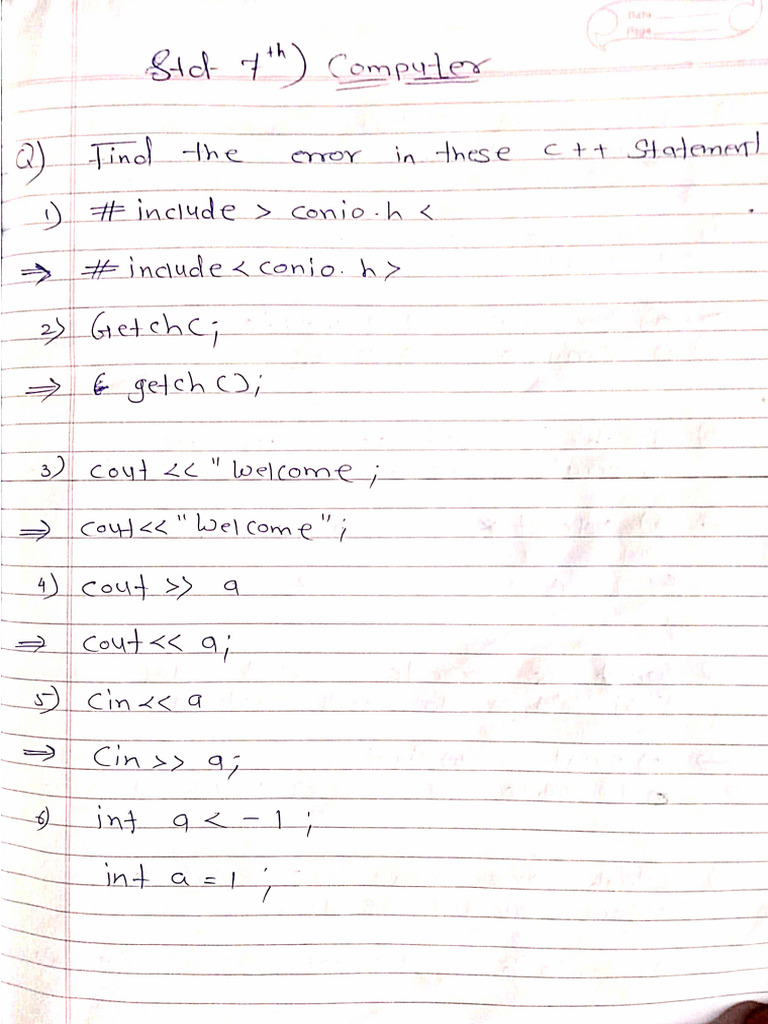 Date
Page
Std 7th) Computer
Q) Find the error in these c++ Statement
1) # include > conio.h <
⇒ # include < conio.h >
2) Getch(;
⇒ getch();
3) cout << " Welcome ;
⇒ cout<< "Welcome" ;
4) cout >> a
⇒ cout << a;
5) Cin << a
⇒ Cin >> a;
6) int a < - 1 ;
int a = 1 ;